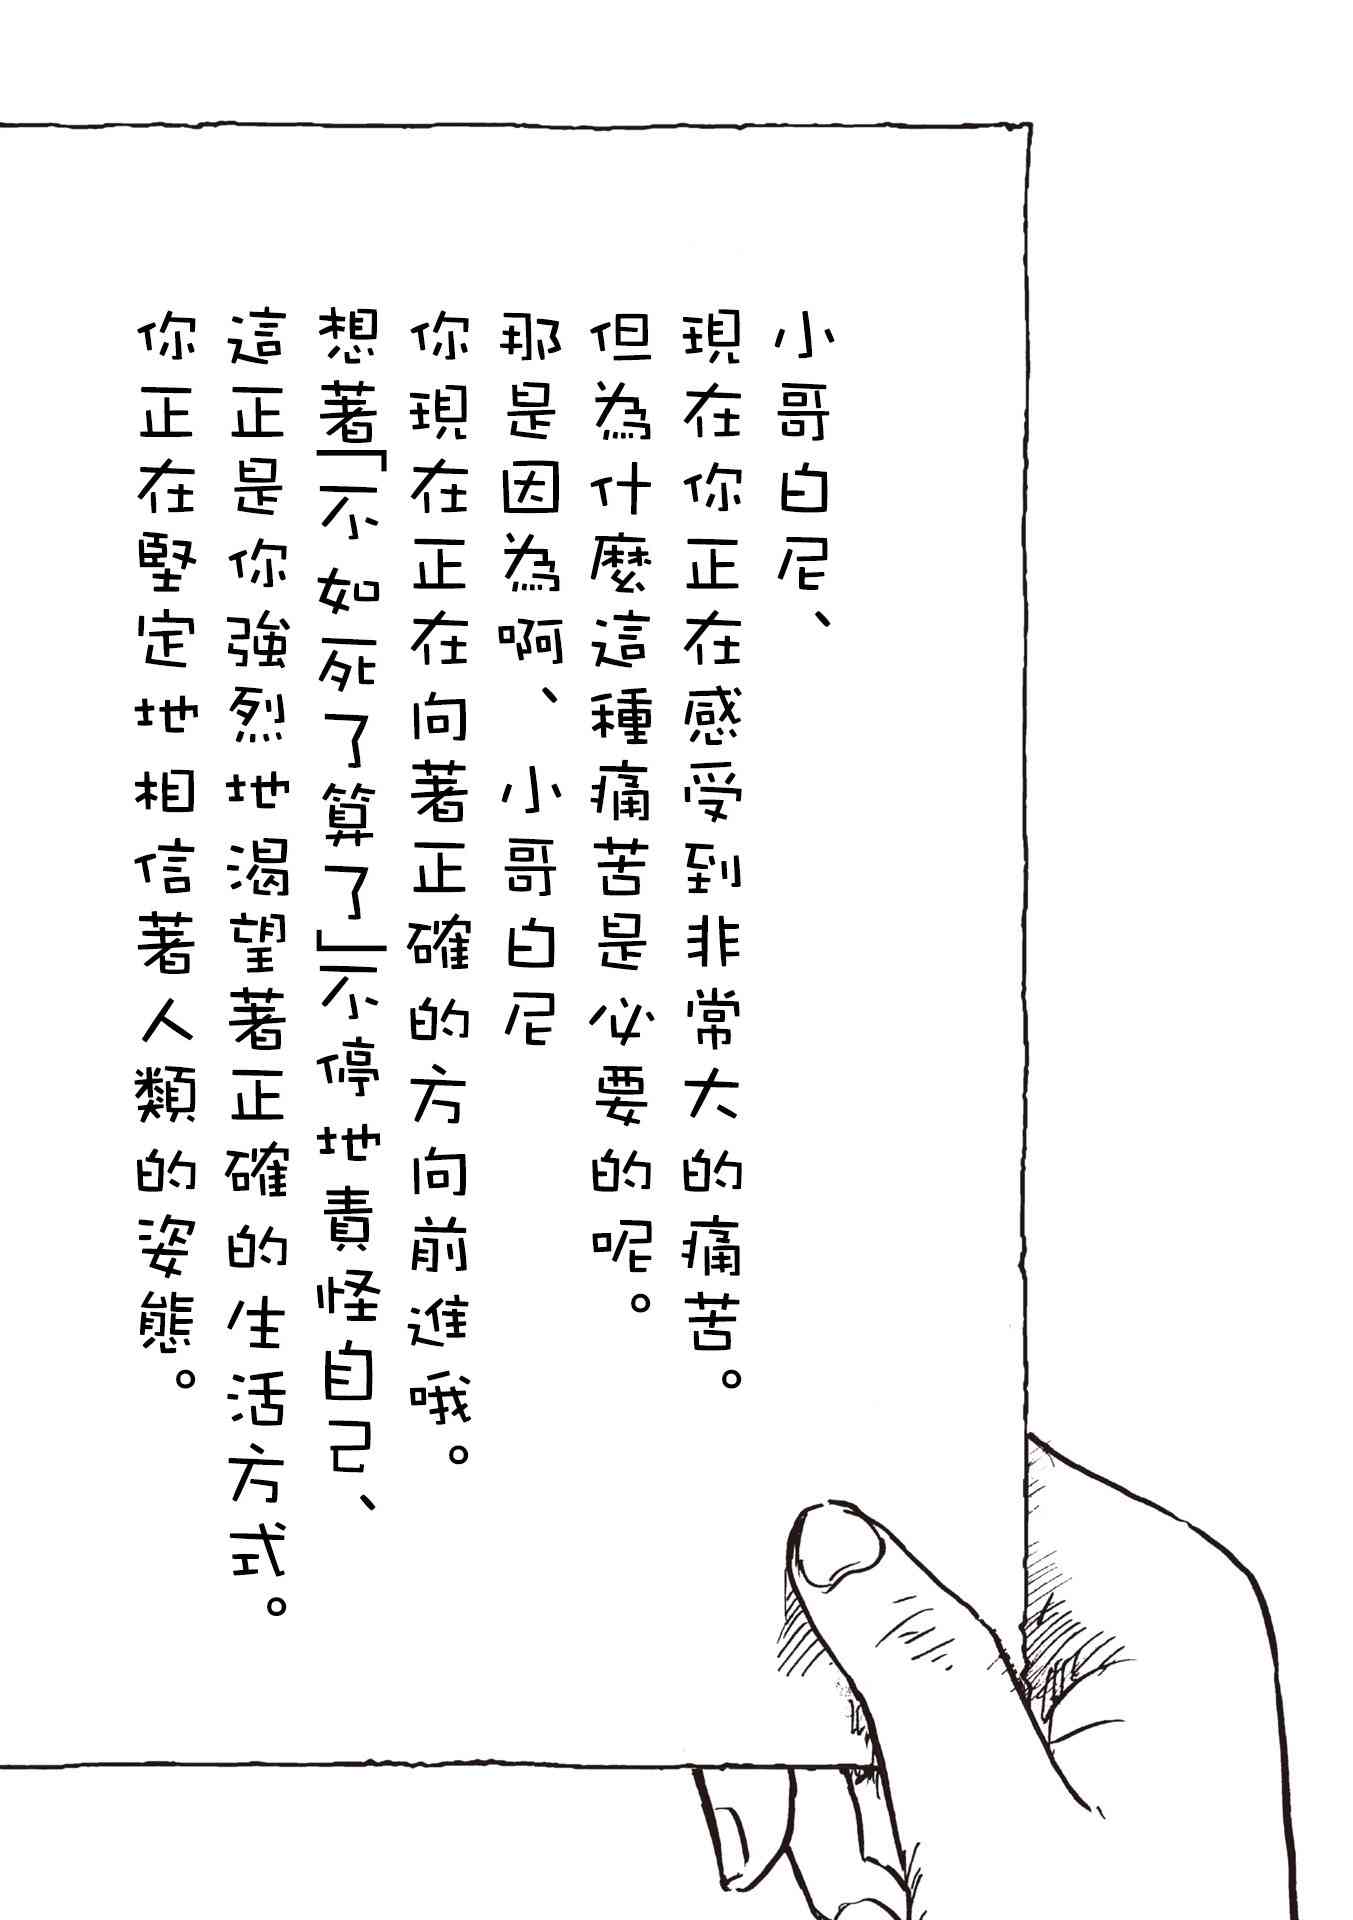 小哥白尼、
現在你正在感受到非常大的痛苦。
但為什麼這種痛苦是必要的呢。
那是因為啊、小哥白尼
你現在正在向著正確的方向前進哦。
想著「不如死了算了」不停地責怪自己、
這正是你強烈地渴望著正確的生活方式。
你正在堅定地相信著人類的姿態。